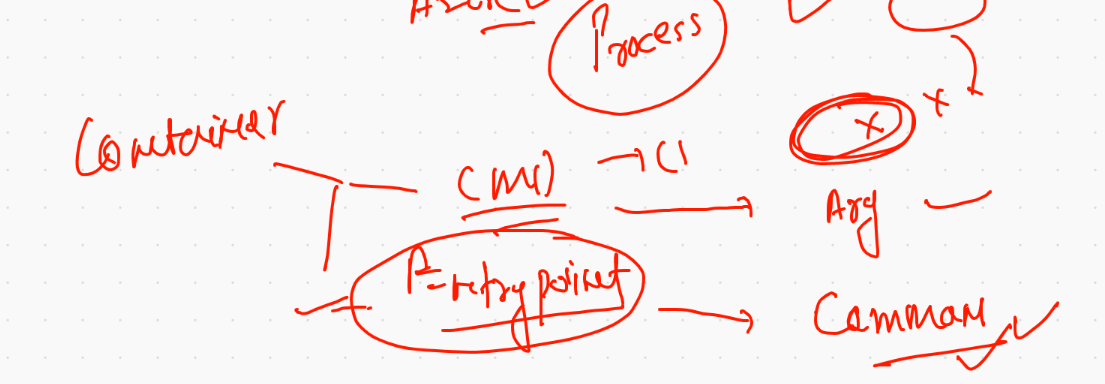 Process
Container
CMD → C1
X x
Arg
Entrypoint
Comman